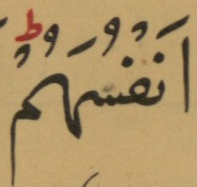 اَنْفُسَهُمْ ؕ